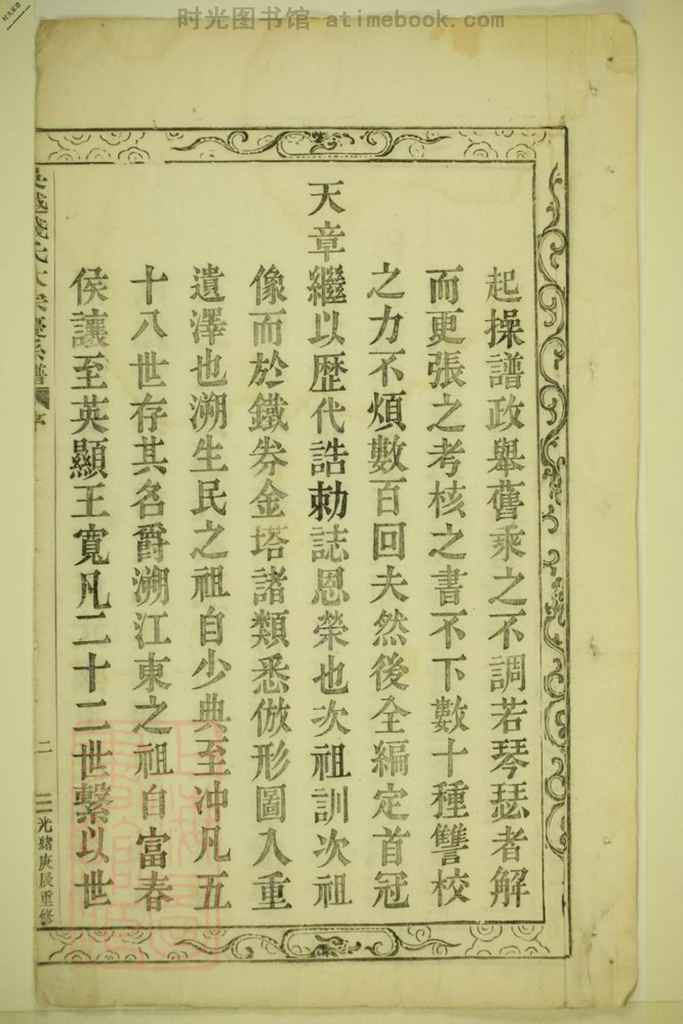 时光图书馆 atimebook.com
起操譜政舉舊乘之不調若琴瑟者解
而更張之考核之書不下數十種讐校
之力不煩數百回夫然後全編定首冠
天章繼以歷代誥勅誌恩榮也次祖訓次祖
像而於鐵劵金塔諸類悉倣形圖入重
遺澤也溯生民之祖自少典至冲凡五
十八世存其名爵溯江東之祖自富春
侯讓至英顯王寬凡二十二世繫以世
吳越錢氏大宗慶系譜 序 二 光緒庚辰重修